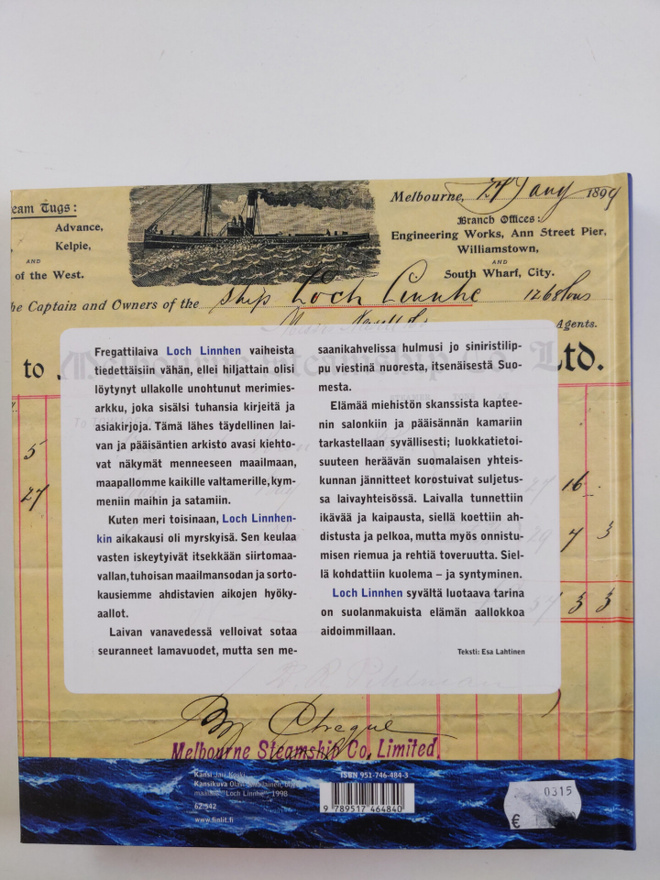 eam Tugs:
Advance,
Kelpie,
AND
of the West.
Melbourne, 27 Jany 1899
Branch Offices:
Engineering Works, Ann Street Pier,
Williamstown,
AND
South Wharf, City.
he Captain and Owners of the ship Loch Linnhe 1268 tons
Agents.
to Melbourne Steamship Co. Ltd.
Fregattilaiva Loch Linnhen vaiheista
tiedettäisiin vähän, ellei hiljattain olisi
löytynyt ullakolle unohtunut merimies-
arkku, joka sisälsi tuhansia kirjeitä ja
asiakirjoja. Tämä lähes täydellinen lai-
van ja pääisäntien arkisto avasi kiehto-
vat näkymät menneeseen maailmaan,
maapallomme kaikille valtamerille, kym-
meniin maihin ja satamiin.
Kuten meri toisinaan, Loch Linnhen-
kin aikakausi oli myrskyisä. Sen keulaa
vasten iskeytyivät itsekkään siirtomaa-
vallan, tuhoisan maailmansodan ja sorto-
kausiemme ahdistavien aikojen hyöky-
aallot.
Laivan vanavedessä velloivat sotaa
seuranneet lamavuodet, mutta sen me-
saanikahvelissa hulmusi jo siniristilip-
pu viestinä nuoresta, itsenäisestä Suo-
mesta.
Elämää miehistön skanssista kaptee-
nin salonkiin ja pääisännän kamariin
tarkastellaan syvällisesti; luokkatietoi-
suuteen heräävän suomalaisen yhteis-
kunnan jännitteet korostuivat suljetus-
sa laivayhteisössä. Laivalla tunnettiin
ikävää ja kaipausta, siellä koettiin ah-
distusta ja pelkoa, mutta myös onnistu-
misen riemua ja rehtiä toveruutta. Siel-
lä kohdattiin kuolema – ja syntyminen.
Loch Linnhen syvältä luotaava tarina
on suolanmakuista elämän aallokkoa
aidoimmillaan.
Teksti: Esa Lahtinen
5
27
16
7 3
3 3
By Cheque
Melbourne Steamship Co, Limited.
Kansi
Kansikuva
Loch Linnhe 1998
62.542
www.finlit.fi
ISBN 951-746-484-3
9 789517 464840
0315
€